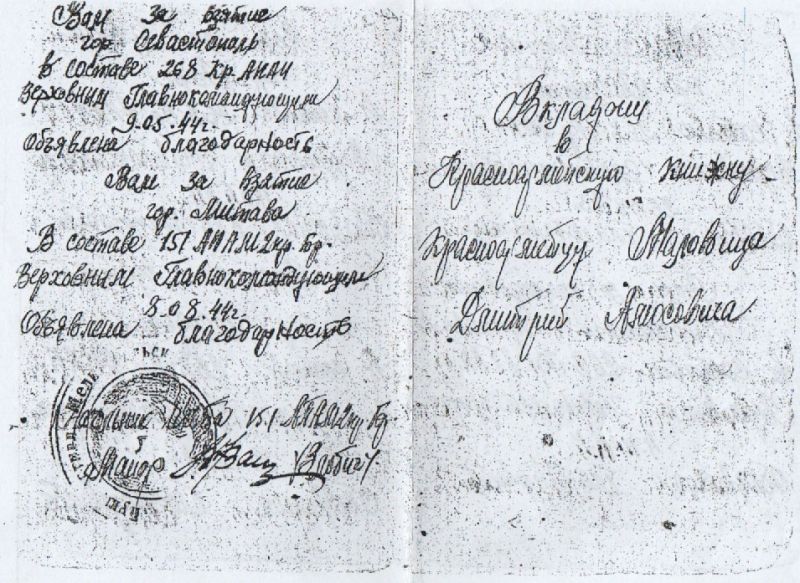 Вам за взятие
гор. Севастополь
в составе 268 Кр. АПАП
Верховным Главнокомандующим
9.05.44г.
Объявлена благодарность
Вам за взятие
гор. Митава
В составе 151 АПАМ2кр. Бр.
Верховным Главнокомандующим
8.08.44г.
Объявлена благодарность
Начальник Штаба 151 АПАМ2кр Бр
Майор
Вкладыш
в
Красноармейскую книжку
Красноармейцу
Дмитрий Амосовича